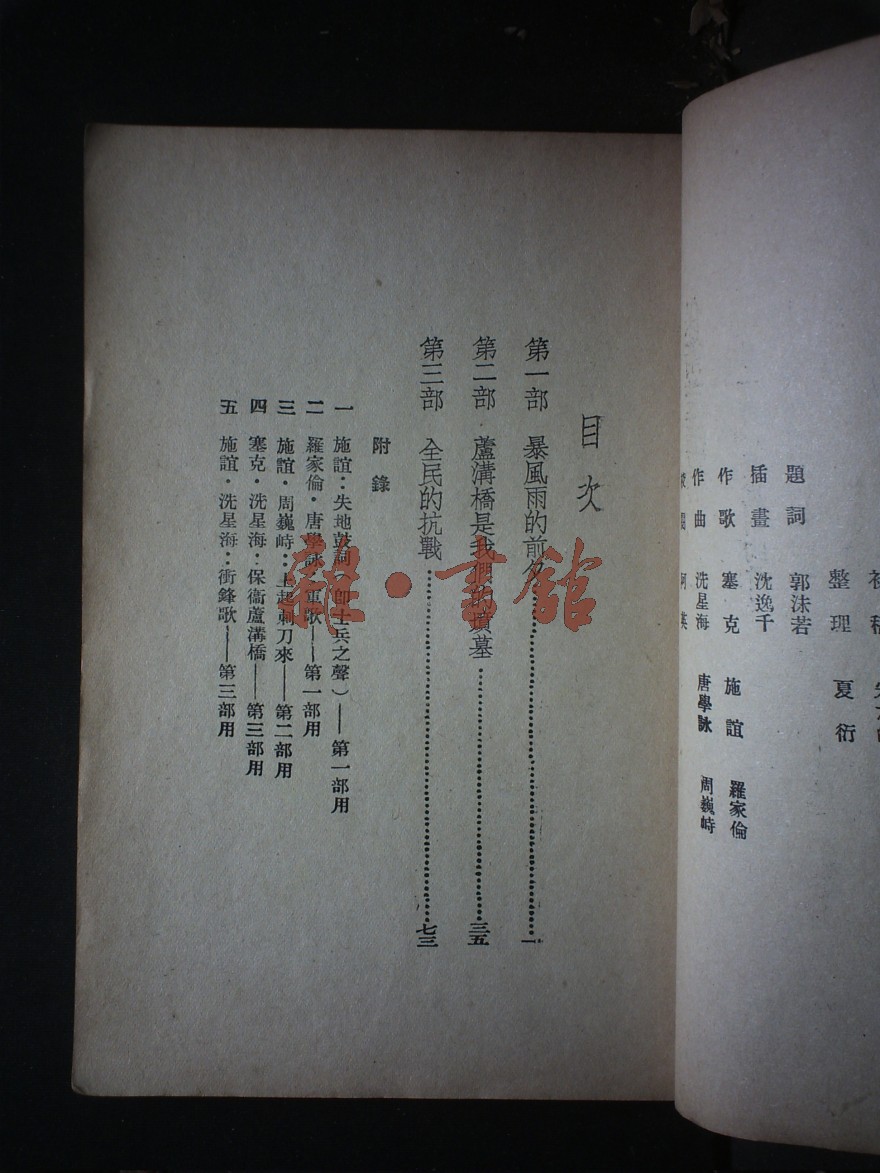 整理 夏衍
題詞 郭沫若
插畫 沈逸千
作歌 塞克 施誼 羅家倫
作曲 洗星海 唐學詠 周巍峙
目次
第一部 暴風雨的前夕 一
第二部 蘆溝橋是我們的墳墓 三五
第三部 全民的抗戰 七三
附錄
一 施誼：失地鼓詞（卽士兵之聲）——第一部用
二 羅家倫·唐學詠 軍歌——第一部用
三 施誼·周巍峙：上起刺刀來——第二部用
四 塞克·洗星海：保衞蘆溝橋——第三部用
五 施誼·洗星海：衝鋒歌——第三部用
龍·書館